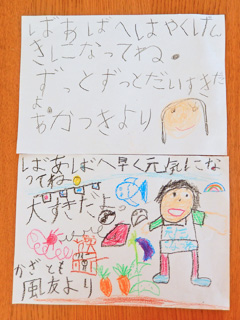 ばあばへはやくげん
きになってね。
ずっとずっとだいすきだ
よ。
かつきより
ばあばへ早く元気にな
ってね。
大すきだよ。
かざとも
風友より